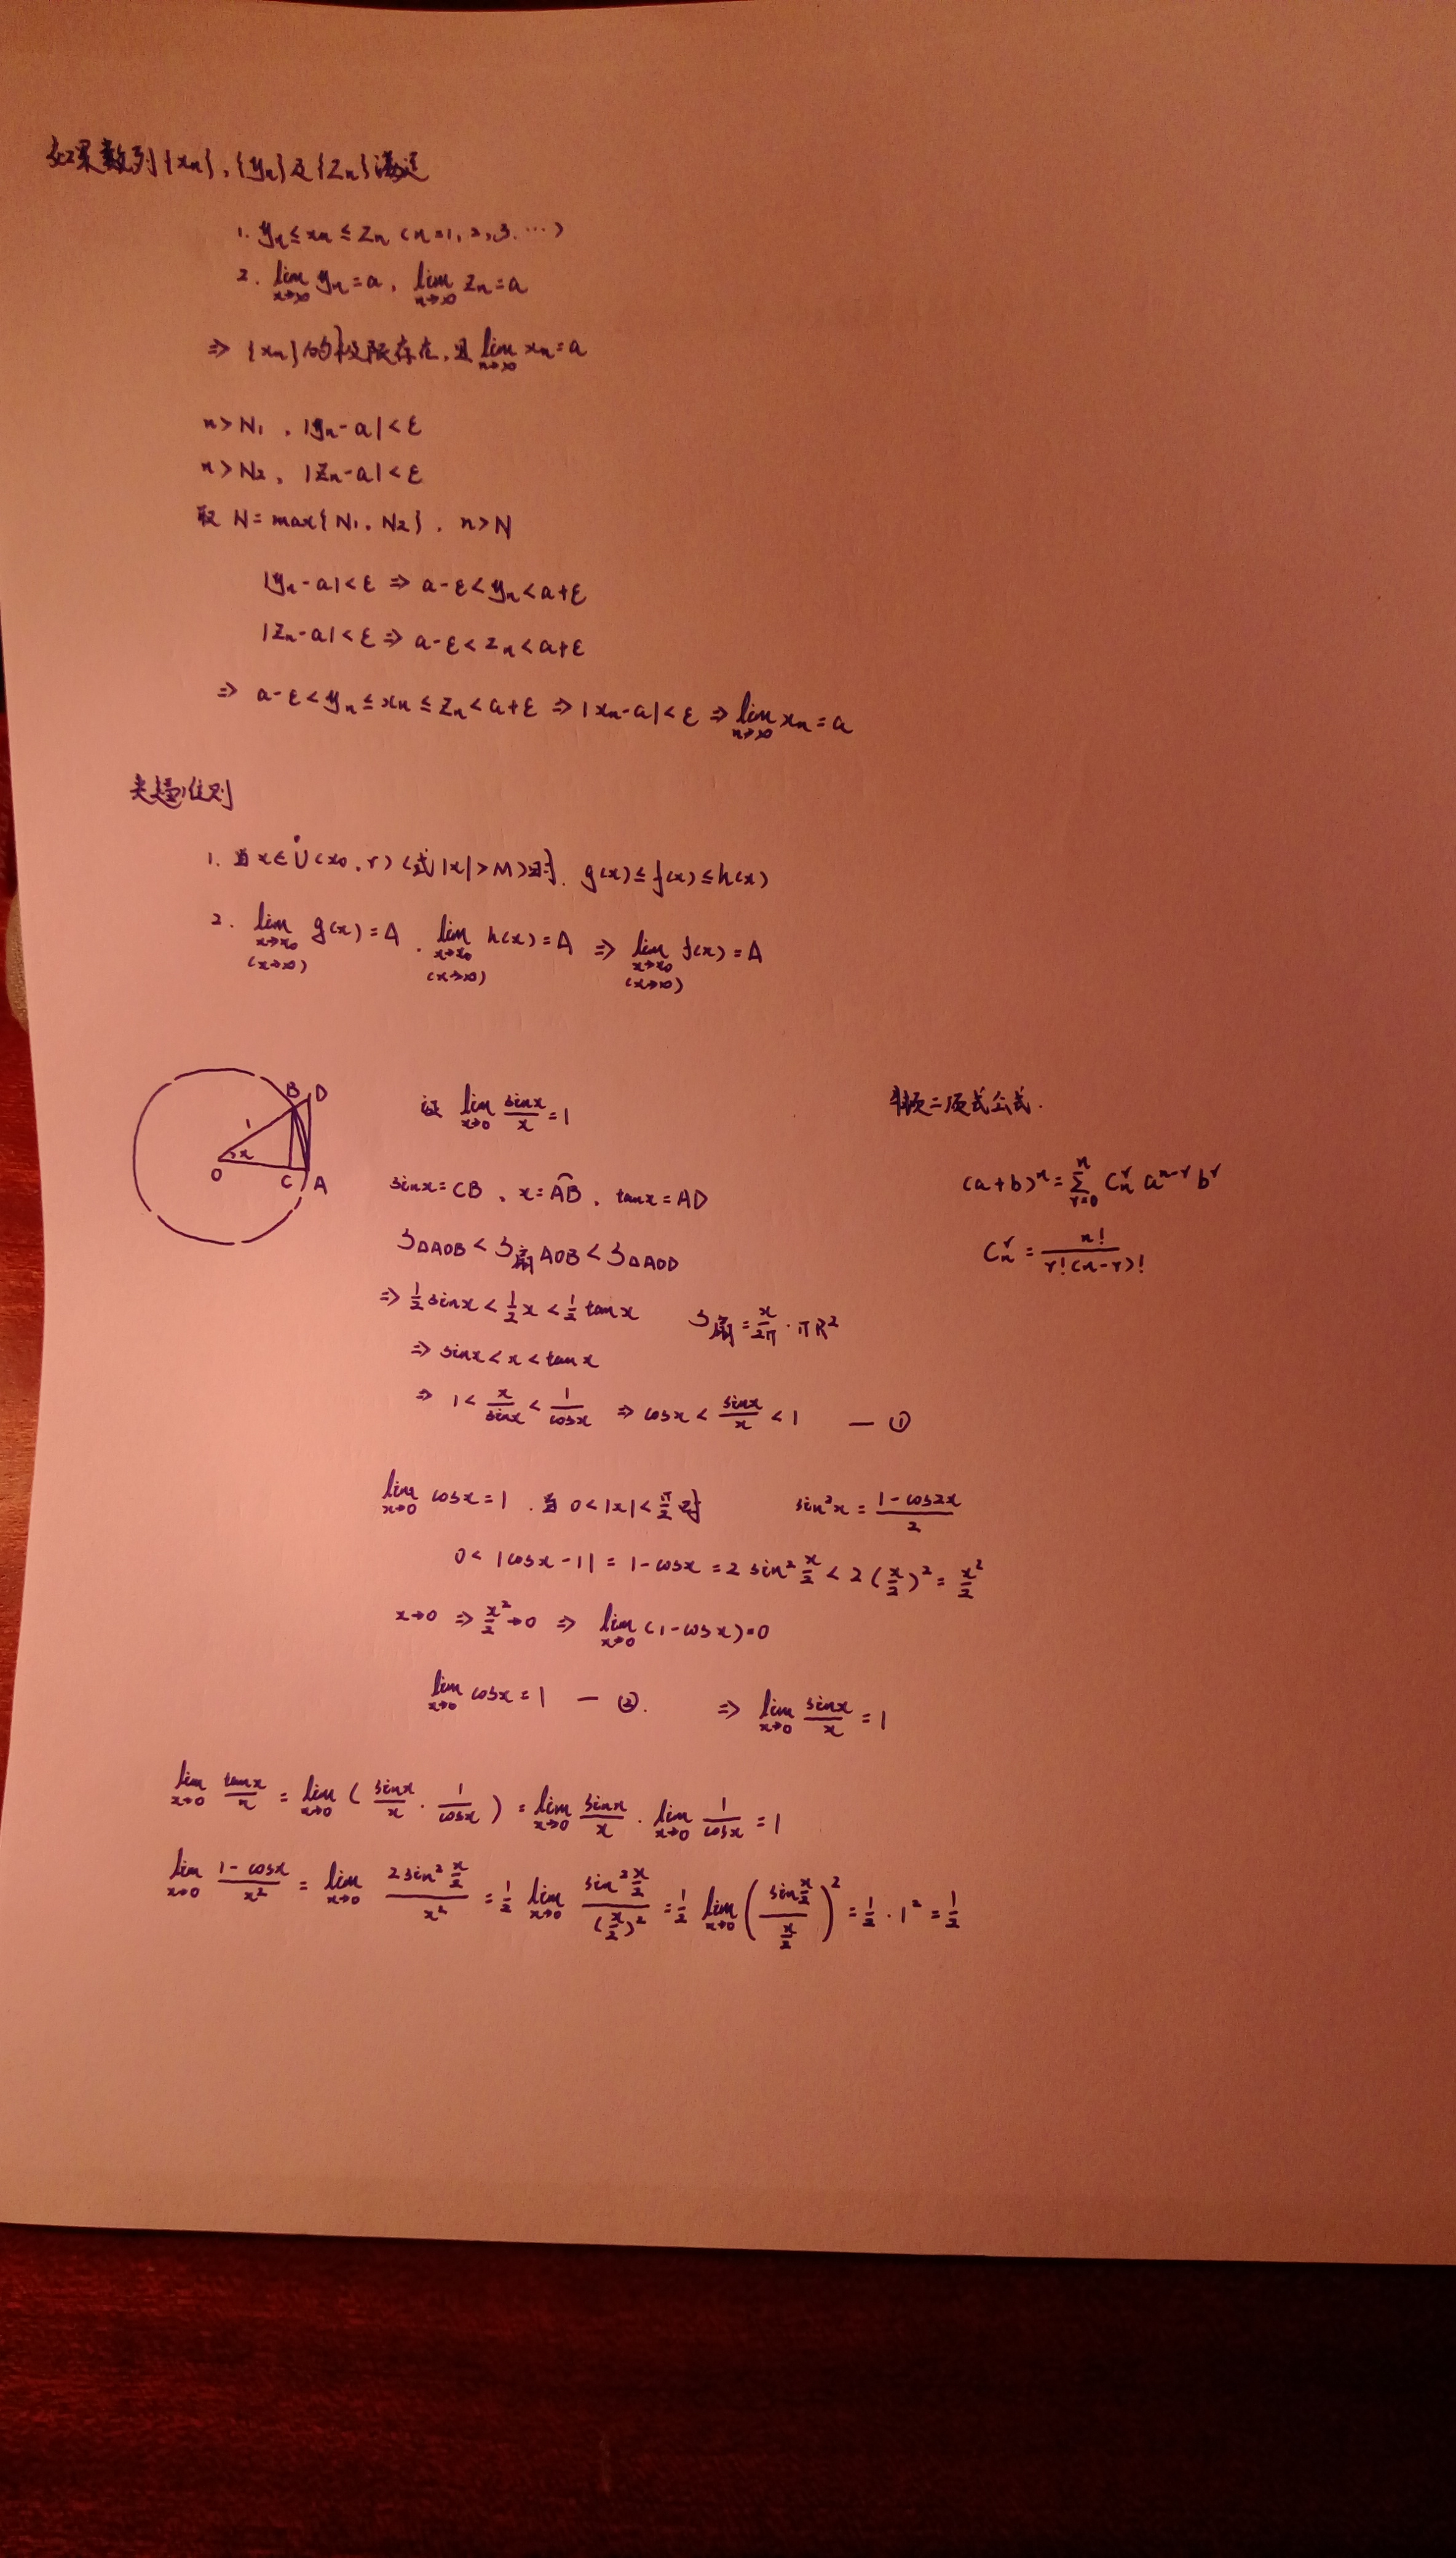 如果数列{xₙ}, {yₙ}及{zₙ}满足
1. yₙ ≤ xₙ ≤ zₙ (n=1, 2, 3, ⋯)
2. lim_{n→∞} yₙ = a, lim_{n→∞} zₙ = a
⇒ {xₙ}的极限存在, 且 lim_{n→∞} xₙ = a
n > N₁, |yₙ - a| < ε
n > N₂, |zₙ - a| < ε
取 N = max{N₁, N₂}, n > N
|yₙ - a| < ε ⇒ a - ε < yₙ < a + ε
|zₙ - a| < ε ⇒ a - ε < zₙ < a + ε
⇒ a - ε < yₙ ≤ xₙ ≤ zₙ < a + ε ⇒ |xₙ - a| < ε ⇒ lim_{n→∞} xₙ = a
夹逼准则
1. 当 x ∈ Ů(x₀, r) (或|x| > M)时, g(x) ≤ f(x) ≤ h(x)
2. lim_{x→x₀ (x→∞)} g(x) = A, lim_{x→x₀ (x→∞)} h(x) = A ⇒ lim_{x→x₀ (x→∞)} f(x) = A
B D
1
x
O C A
证 lim_{x→0} sinx/x = 1
sinx = CB, x = A͡B, tanx = AD
S△AOB < S扇AOB < S△AOD
⇒ 1/2 sinx < 1/2 x < 1/2 tanx
S扇 = x/2π · πR²
⇒ sinx < x < tanx
⇒ 1 < x/sinx < 1/cosx ⇒ cosx < sinx/x < 1 — ①
二项式公式.
(a+b)ⁿ = Σ_{r=0}^{n} Cₙʳ aⁿ⁻ʳ bʳ
Cₙʳ = n!/r!(n-r)!
lim_{x→0} cosx = 1, 当 0 < |x| < π/2 时
sin²x = (1 - cos2x)/2
0 < |cosx - 1| = 1 - cosx = 2 sin² x/2 < 2 (x/2)² = x²/2
x→0 ⇒ x²/2 → 0 ⇒ lim_{x→0} (1 - cosx) = 0
lim_{x→0} cosx = 1 — ②. ⇒ lim_{x→0} sinx/x = 1
lim_{x→0} tanx/x = lim_{x→0} (sinx/x · 1/cosx) = lim_{x→0} sinx/x · lim_{x→0} 1/cosx = 1
lim_{x→0} (1 - cosx)/x² = lim_{x→0} (2 sin² x/2)/x² = 1/2 lim_{x→0} (sin² x/2)/(x/2)² = 1/2 lim_{x→0} ((sin x/2)/(x/2))² = 1/2 · 1² = 1/2